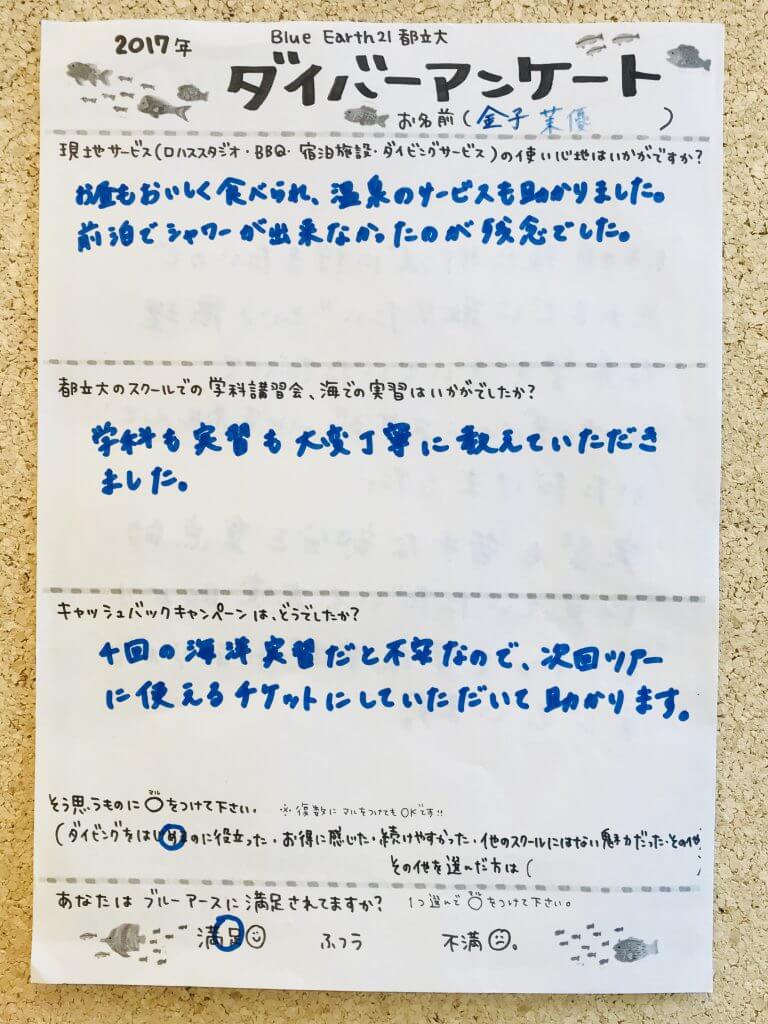 2017年
Blue Earth21 都立大
ダイバーアンケート
お名前 ( 金子 茉優 )
現地サービス(ロハススタジオ・BBQ・宿泊施設・ダイビングサービス)の使い心地はいかがですか?
お昼もおいしく食べられ、温泉のサービスも助かりました。
前泊でシャワーが出来なかったのが残念でした。
都立大のスクールでの学科講習会、海での実習はいかがでしたか?
学科も実習も大変丁寧に教えていただき
ました。
キャッシュバックキャンペーンは、どうでしたか?
4回の海洋実習だと不安なので、次回ツアー
に使えるチケットにしていただいて助かります。
そう思うものに○をつけて下さい。 ※複数にマルをつけてもOKです!!
(ダイビングをはじめるのに役立った・お得に感じた・続けやすかった・他のスクールにはない魅力だった・その他
その他を選んだ方は ( )
あなたはブルーアースに満足されてますか? 1つ選んで○をつけて下さい。
満足 ふつう 不満。